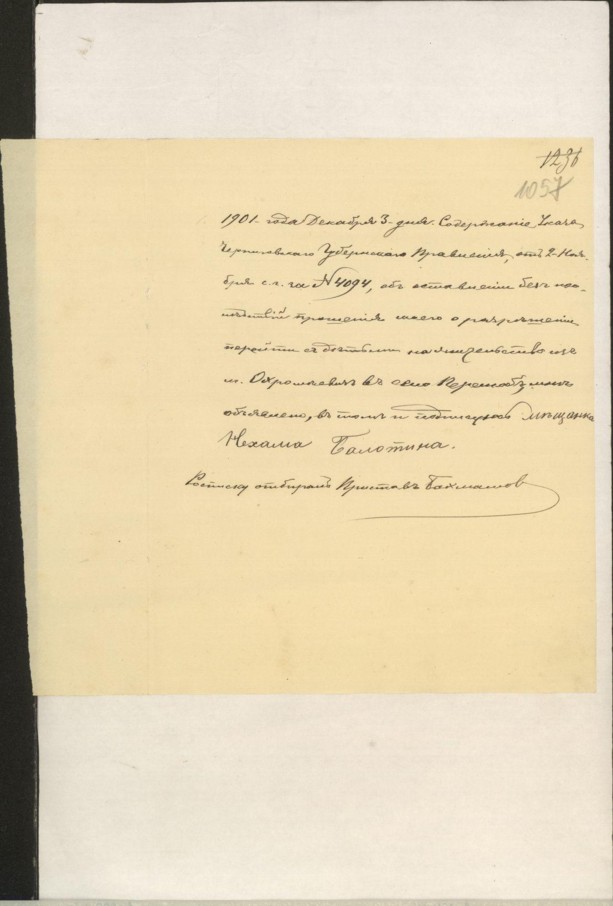 1296
1057
1901 года Декабря 3 дня. Содержание Указа
Черниговского Губернского Правления, отъ 2 Ноя-
бря с.г. за № 4094, объ оставлении безъ пос-
лѣдствій прошенія моего о разрѣшении
перейти съ дѣтьми на жительство изъ
м. въ село мнѣ
объявлено, въ томъ и подписуюсь мѣщанка
Нехама Балотина.
Росписку отбиралъ Приставъ